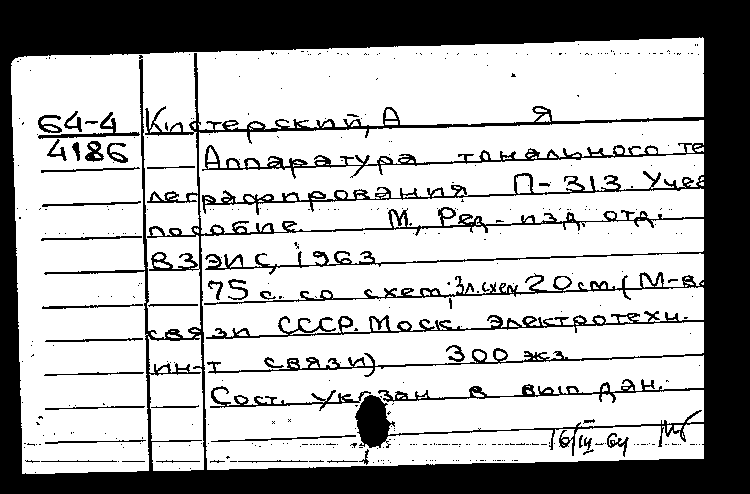 64-4 Кистерский, А Я
4186 Аппаратура тонального те
леграфирования П-313. Учеб
пособие. М., Ред.-изд. отд.
ВЗЭИС, 1963.
75 с. со схем.; 3 л. схем. 20 см. (М-во
связи СССР. Моск. электротехн.
ин-т связи). 300 экз.
Сост. указан в вып. дан.
16/III-64